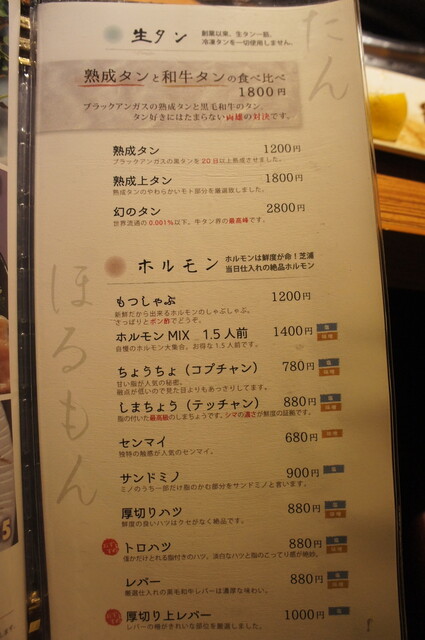 たん
生タン
創業以来、生タン一筋。
冷凍タンを一切使用しません。
熟成タンと和牛タンの食べ比べ
1800円
ブラックアンガスの熟成タンと黒毛和牛のタン。
タン好きにはたまらない両雄の対決です。
熟成タン 1200円
ブラックアンガスの黒タンを20日以上熟成させました。
熟成上タン 1800円
熟成タンのやわらかいモト部分を厳選致しました。
幻のタン 2800円
世界流通の0.001%以下。牛タン界の最高峰です。
ほるもん
ホルモン
ホルモンは鮮度が命！芝浦
当日仕入れの絶品ホルモン
もつしゃぶ 1200円
新鮮だから出来るホルモンのしゃぶしゃぶ。
さっぱりとポン酢でどうぞ。
ホルモンMIX 1.5人前 1400円 塩 味噌
自慢のホルモン大集合。お得な1.5人前です。
ちょうちょ（コブチャン） 780円 塩 味噌
甘い脂が人気の秘密。
融点が低いので見た目よりもあっさりしてます。
しまちょう（テッチャン） 880円 塩 味噌
脂の付いた最高級のしまちょうです。シマの濃さが鮮度の証拠です。
センマイ 680円 味噌
独特の触感が人気のセンマイ。
サンドミノ 900円 塩
ミノのうち一部だけ脂のかむ部分をサンドミノと言います。
厚切りハツ 880円 塩 味噌
鮮度の良いハツはクセがなく絶品です。
トロハツ 880円 塩 味噌
僅かだけとれる脂付きのハツ。淡白なハツと脂のこってり感が絶妙。
レバー 880円 塩 味噌
厳選仕入れの黒毛和牛レバーは濃厚な味わい。
厚切り上レバー 1000円 塩
レバーの角がきれいな部位を厳選しました。